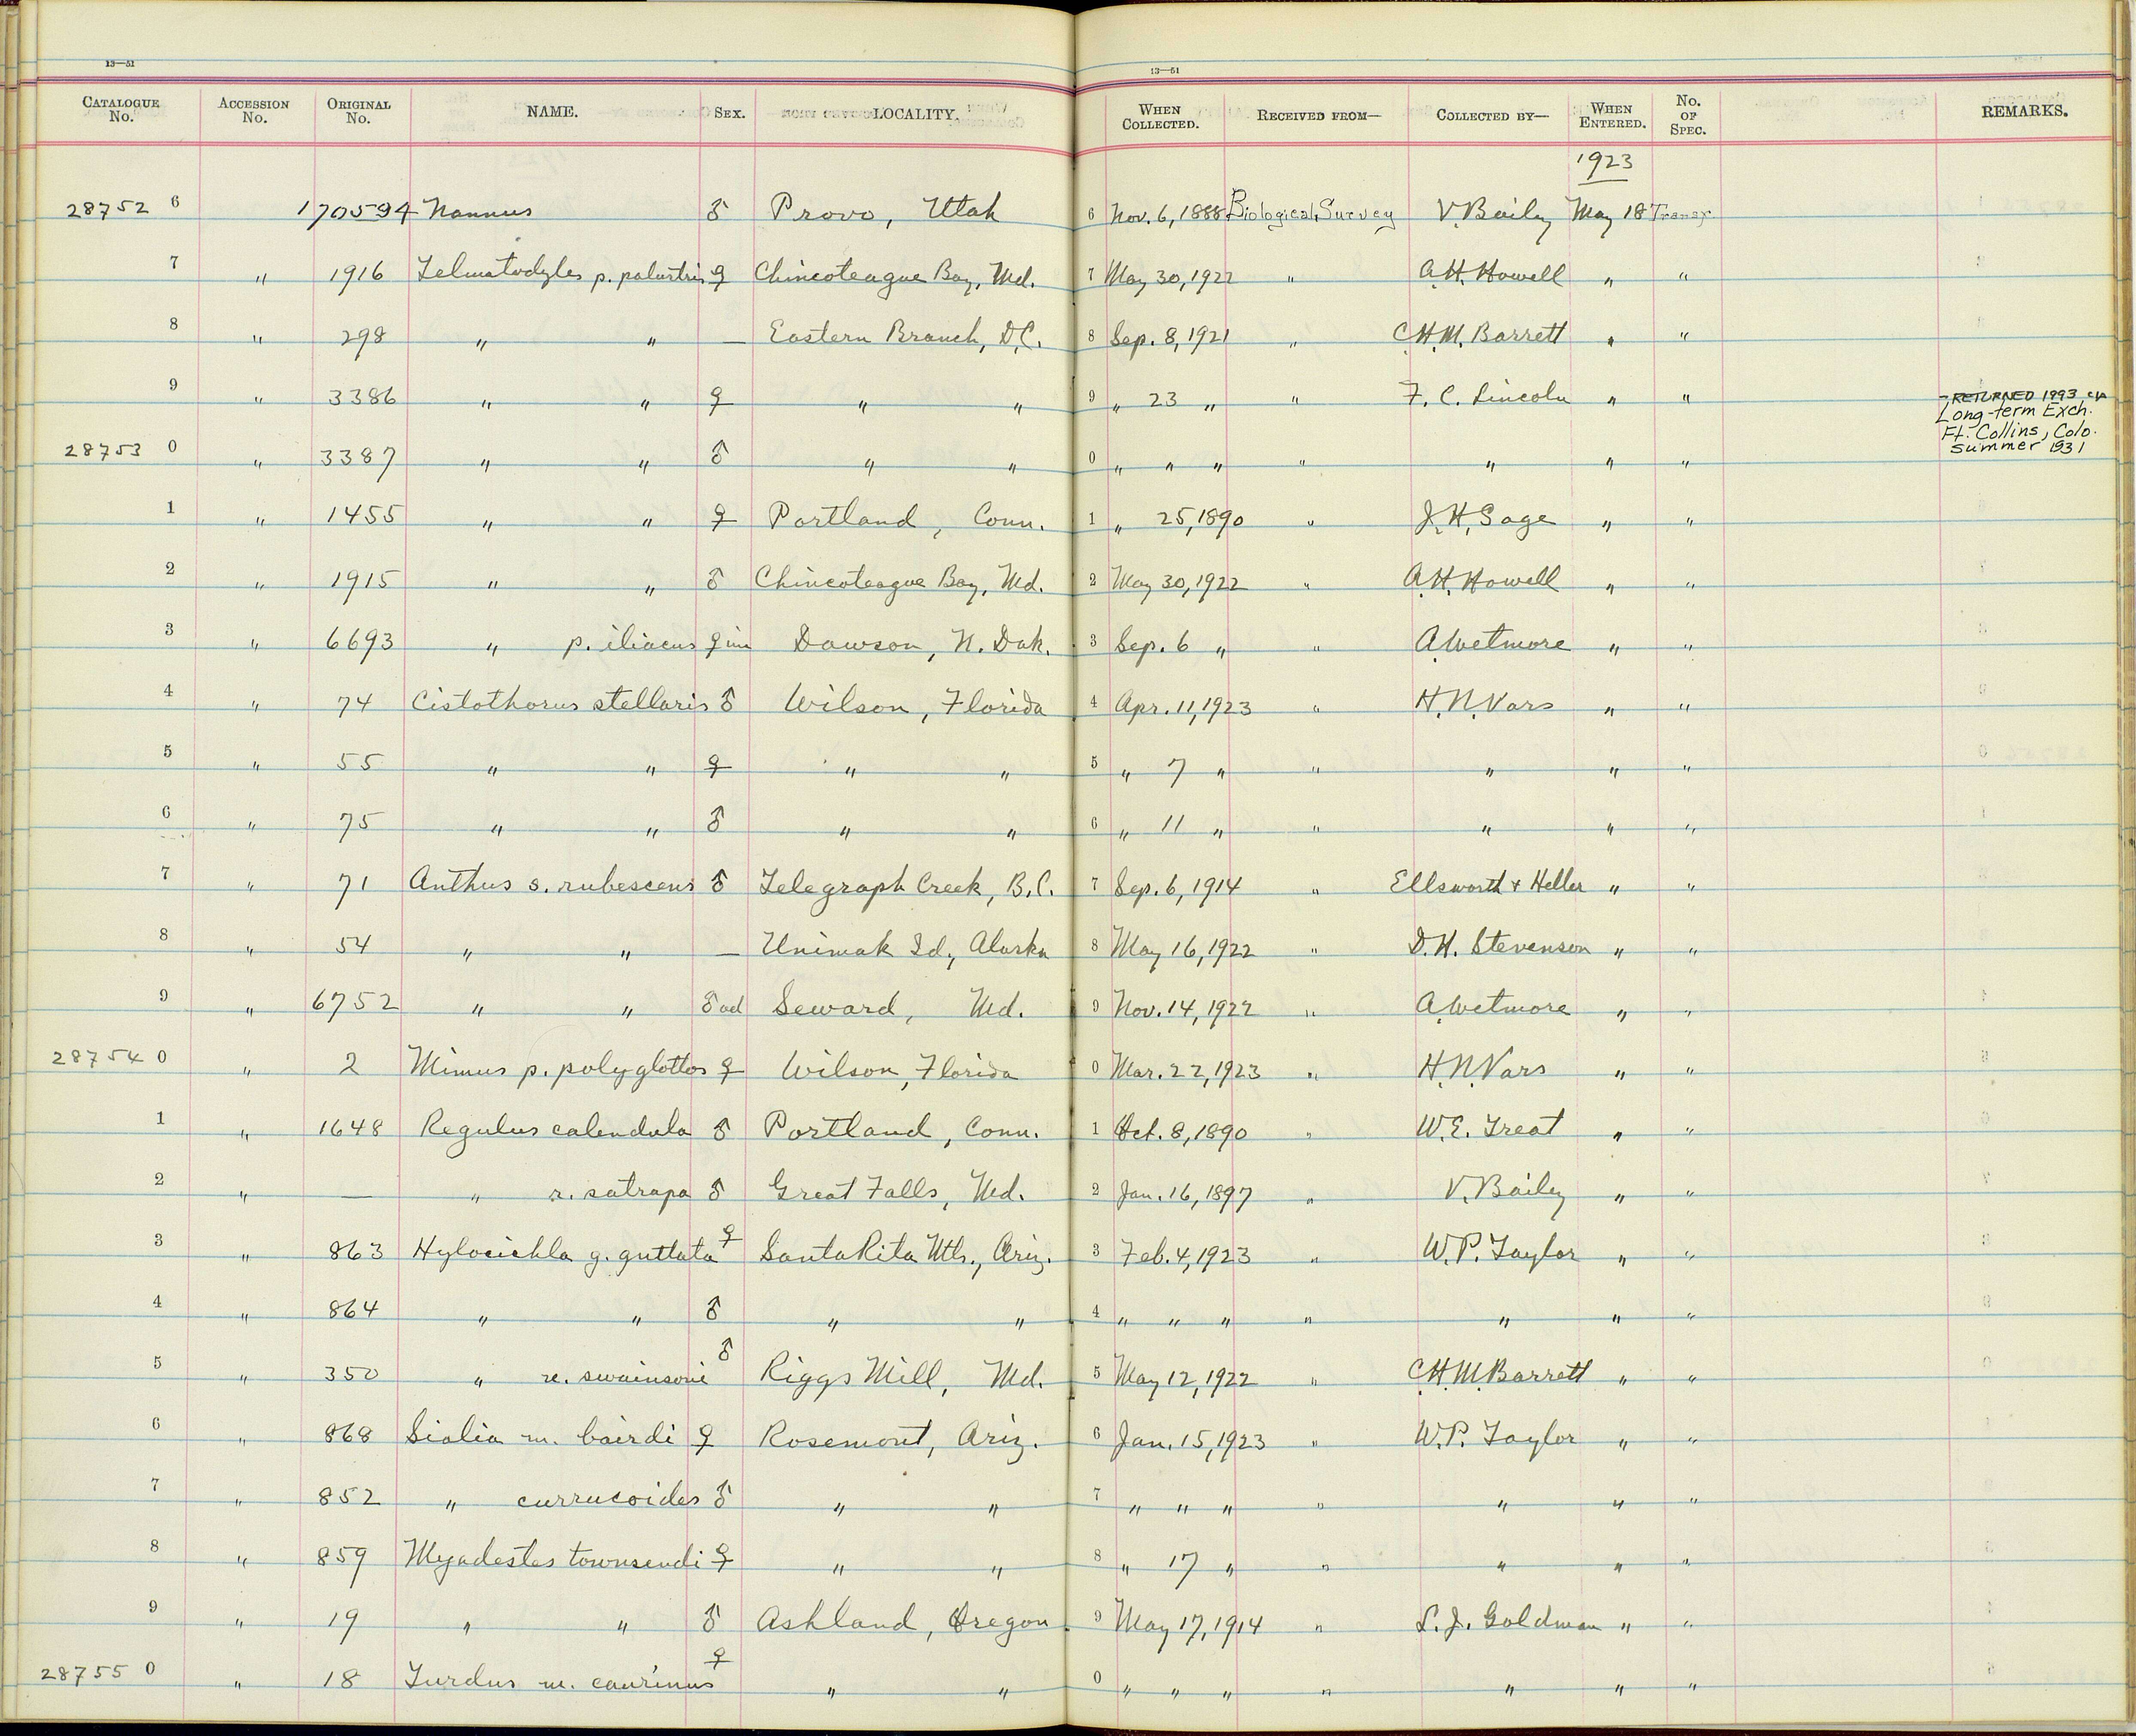 13—51 13—51
CATALOGUE No. ACCESSION No. ORIGINAL No. NAME. SEX. LOCALITY. WHEN COLLECTED. RECEIVED FROM— COLLECTED BY— WHEN ENTERED. No. OF SPEC. REMARKS.
1923
28752 6 170594 Nannus ♂ Provo, Utah 6 Nov. 6, 1888 Biological Survey V. Bailey May 18 Transf
7 " 1916 Telmatodytes p. palustris ♀ Chincoteague Bay, Md. 7 May 30, 1922 " A.H. Howell " "
8 " 298 " " — Eastern Branch, D.C. 8 Sep. 8, 1921 " C.H.M. Barrett " "
9 " 3386 " " ♀ " " 9 " 23 " " F. C. Lincoln " " RETURNED 1993
Long-term Exch.
Ft. Collins, Colo.
Summer 1931
28753 0 " 3387 " " ♂ " " 0 " " " " " " "
1 " 1455 " " ♀ Portland, Conn. 1 " 25, 1890 " J.H. Sage " "
2 " 1915 " " ♂ Chincoteague Bay, Md. 2 May 30, 1922 " A.H. Howell " "
3 " 6693 " p. iliacus ♀ im Dawson, N. Dak. 3 Sep. 6 " " A. Wetmore " "
4 " 74 Cistothorus stellaris ♂ Wilson, Florida 4 Apr. 11, 1923 " H.N. Vars " "
5 " 55 " " ♀ " " 5 " 7 " " " " "
6 " 75 " " ♂ " " 6 " 11 " " " " "
7 " 71 Anthus s. rubescens ♂ Telegraph Creek, B.C. 7 Sep. 6, 1914 " Ellsworth + Heller " "
8 " 54 " " — Unimak Id., Alaska 8 May 16, 1922 " D.H. Stevenson " "
9 " 6752 " " ♂ ad Seward, Md. 9 Nov. 14, 1922 " A. Wetmore " "
28754 0 " 2 Mimus p. polyglottos ♀ Wilson, Florida 0 Mar. 22, 1923 " H.N. Vars " "
1 " 1648 Regulus calendula ♂ Portland, Conn. 1 Oct. 8, 1890 " W.E. Treat " "
2 " — " r. satrapa ♂ Great Falls, Md. 2 Jan. 16, 1897 " V. Bailey " "
3 " 863 Hylocichla g. guttata ♀ Santa Rita Mts., Ariz. 3 Feb. 4, 1923 " W.P. Taylor " "
4 " 864 " " ♂ " " 4 " " " " " " "
5 " 350 " u. swainsoni ♂ Riggs Mill, Md. 5 May 12, 1922 " C.H.M. Barrett " "
6 " 868 Sialia m. bairdi ♀ Rosemont, Ariz. 6 Jan. 15, 1923 " W.P. Taylor " "
7 " 852 " currucoides ♂ " " 7 " " " " " " "
8 " 859 Myadestes townsendi ♀ " " 8 " 17 " " " " "
9 " 19 " " ♂ Ashland, Oregon 9 May 17, 1914 " L.J. Goldman " "
28755 0 " 18 Turdus m. caurinus ♀ " " 0 " " " " " " "